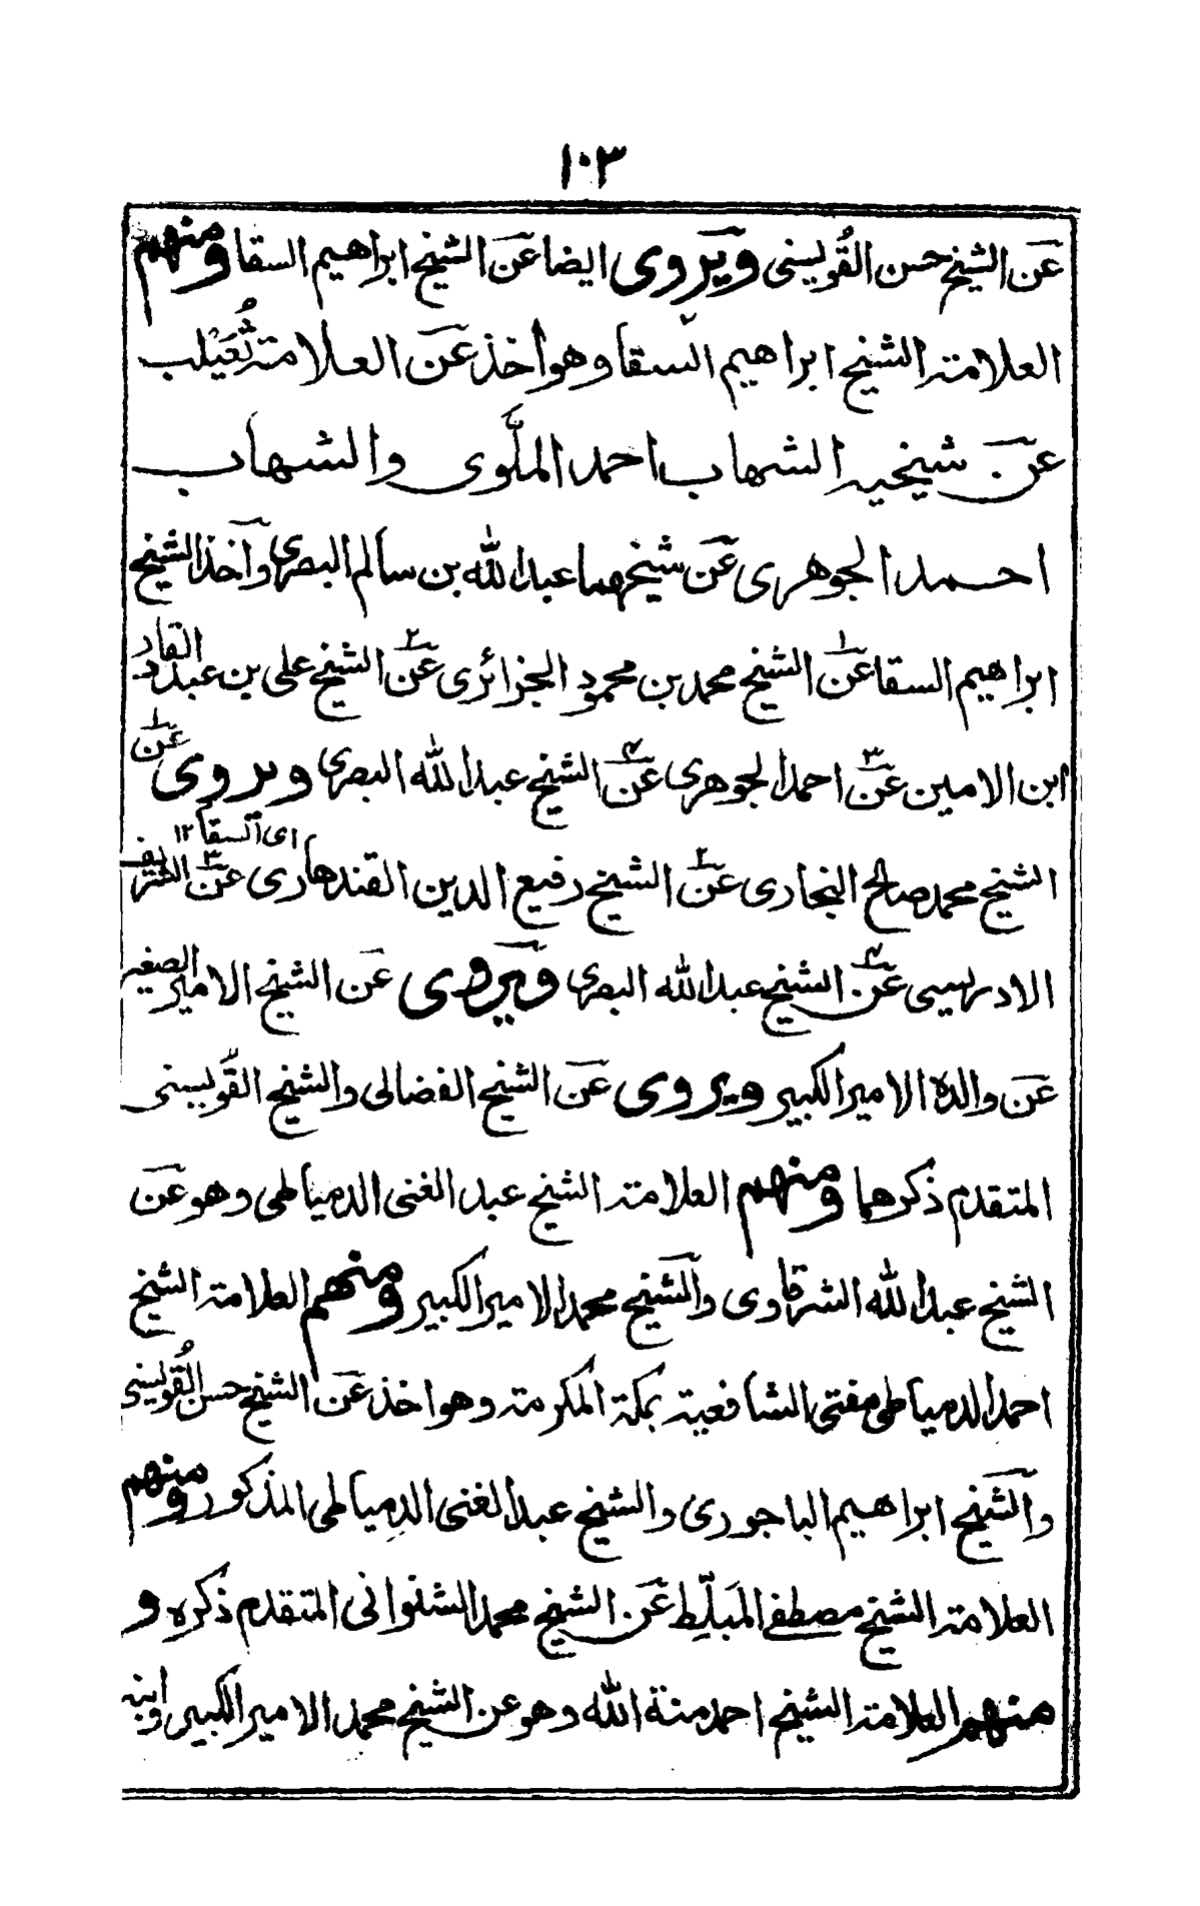 ١٠٣
عَن الشيخ حسن القُويسنى ويَروى ايضا عَن الشيخ ابراهيم السقا ومنهم
العلامة الشيخ ابراهيم السَّقا وهو اخذ عَن العلامة ثُعَيْلِب
عَن شيخيه الشهاب احمد الملَّوى والشهاب
احمد الجوهرى عَن شيخهما عبد الله بن سالم البصرى وآخذ الشيخ
ابراهيم السقا عَن١ الشيخ محمد بن محمود الجزائرى عَن٢ الشيخ على بن عبد القادر
ابن الامين عَن٣ احمد الجوهرى عَن٤ الشيخ عبد الله البصرى ويروى عَن١
اى السقا ١٢
الشيخ محمد صالح البخارى عَن٢ الشيخ رفيع الدين القندهارى عَن٣ الشريف
الادريسى عَن٤ الشيخ عبد الله البصرى ويَروى عَن الشيخ الامير الصغير
عَن والده الامير الكبير ويروى عَن الشيخ الفضالى والشيخ القُويسنى
المتقدم ذكرهما ومنهم العلامة الشيخ عبد الغنى الدمياطى وهو عَن
الشيخ عبد الله الشرقاوى والشيخ محمد الامير الكبير ومنهم العلامة الشيخ
احمد الدمياطى مفتى الشافعية بمكة المكرمة وهو اخذ عَن الشيخ حسن القُويسنى
والشيخ ابراهيم الباجورى والشيخ عبد الغنى الدِمياطى المذكور ومنهم
العلامة الشيخ مصطفے المَبلّط عَن الشيخ محمد الشنوانى المتقدم ذكره و
منهم العلامة الشيخ احمد منة الله وهو عن الشيخ محمد الامير الكبير وابنه